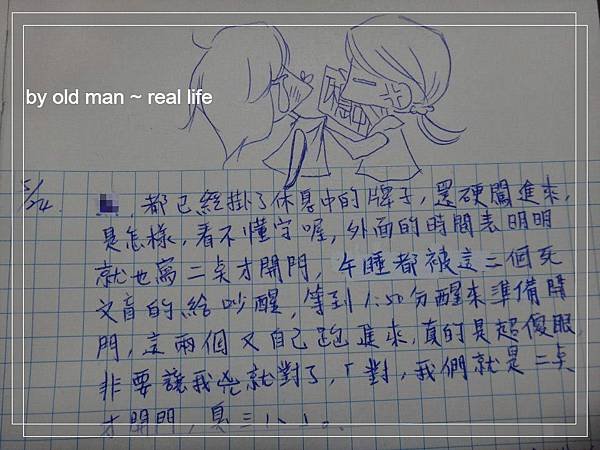 休息中
by old man ~ real life
5/24. 都已經掛了休息中的牌子,還硬闖進來,
是怎樣,看不懂字喔,外面的時間表明明
就也寫二点才開門,午睡都被這二個死
文盲的給吵醒,等到1:50分醒來準備開
門,這兩個又自己跑進來,真的是超傻眼,
非要讓我兇就對了,「對,我們就是二点
才開門,臭三八」。